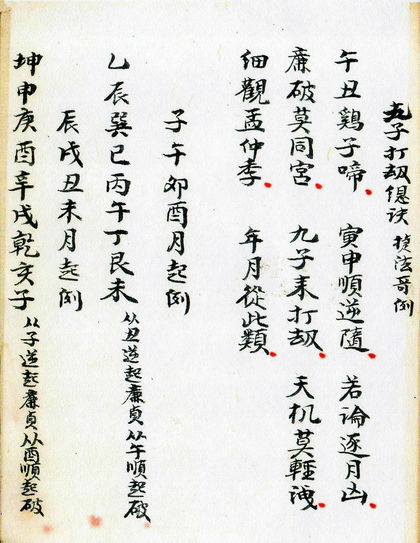 子打刼總訣 法哥例
午丑鷄子啼 寅申順逆隨 若論逐月凶
廉破莫同宮 九子耒打刼 天机莫輕洩
細觀孟仲季 年月從此類
子午卯酉月起例
乙辰巽巳丙午丁艮未 从丑逆起廉貞从午順起破
辰戌丑未月起例
坤申庚酉辛戌乾亥子 从子逆起廉貞从酉順起破